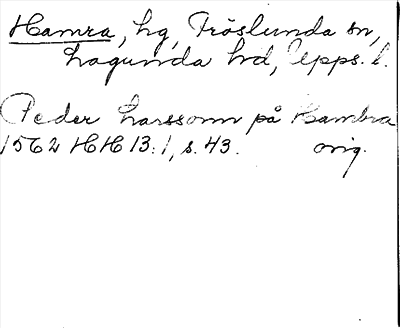 Hamra, hg, Fröslunda sn,
Lagunda hd, Upps. l.
Peder Larssonn på Hambra
1562 HH 13:1, s. 43. orig.